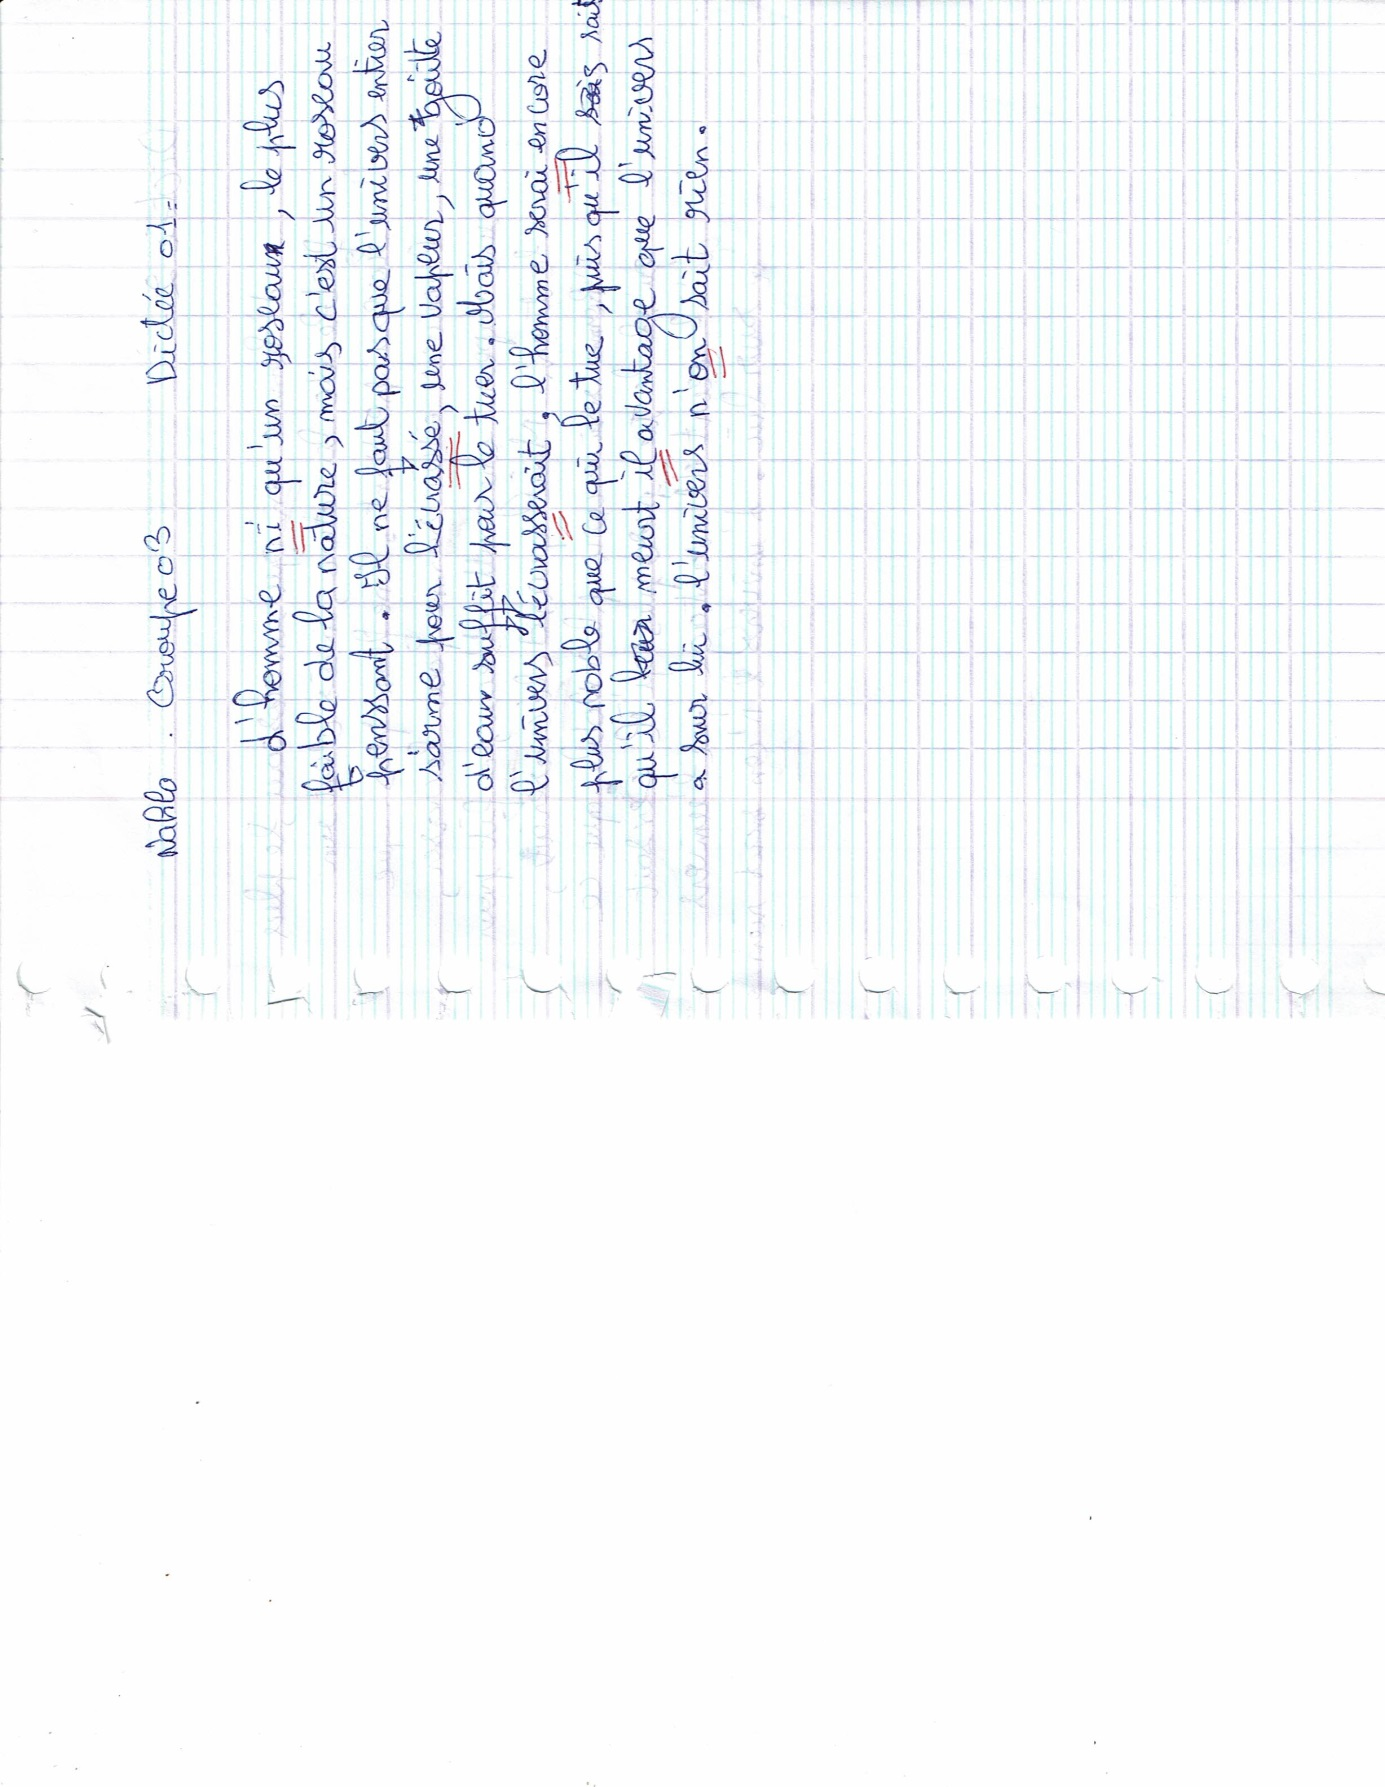 Nahla . Groupe 03 Dictée 01.
L'homme ni qu'un roseau, le plus
faible de la nature, mais c'est un roseau
penssant. Il ne faut pas que l'univers entier
s'arme pour l'écrassé, une vapeur, une goûtte
d'eau suffit pour le tuer. Mais quand
l'univers l'écrasserait, l'homme serai encore
plus noble que ce qui le tue, puis qu'il sait
qu'il meurt il avantage que l'univers
a sur lui. l'univers n'on sait rien.